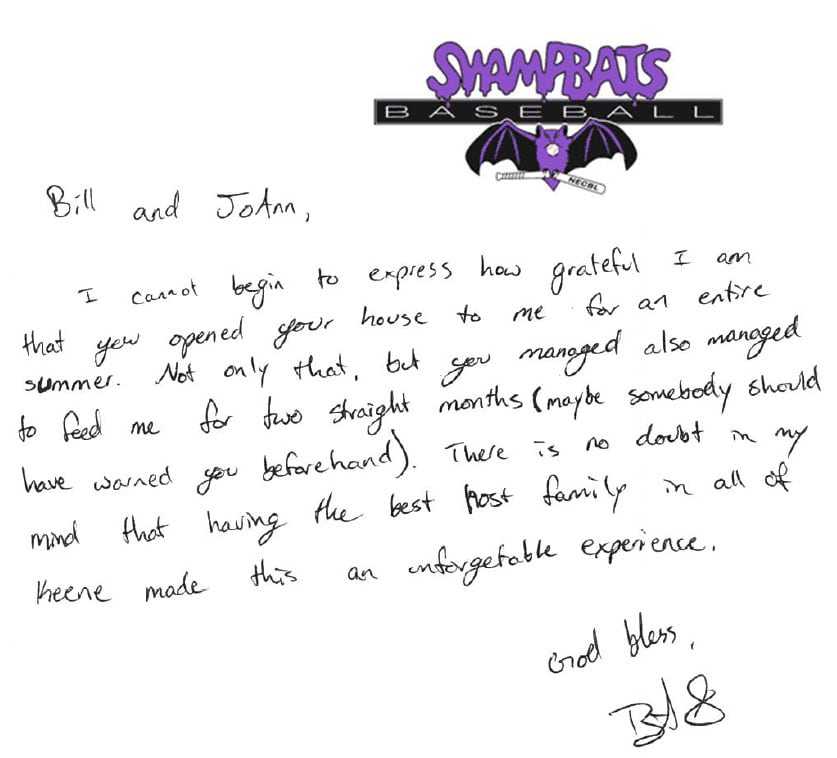 SWAMPBATS
BASEBALL
NECBL
Bill and JoAnn,
I cannot begin to express how grateful I am
that you opened your house to me for an entire
summer. Not only that, but you managed also managed
to feed me for two straight months (maybe somebody should
have warned you beforehand). There is no doubt in my
mind that having the best host family in all of
Keene made this an unforgetable experience.
God bless,